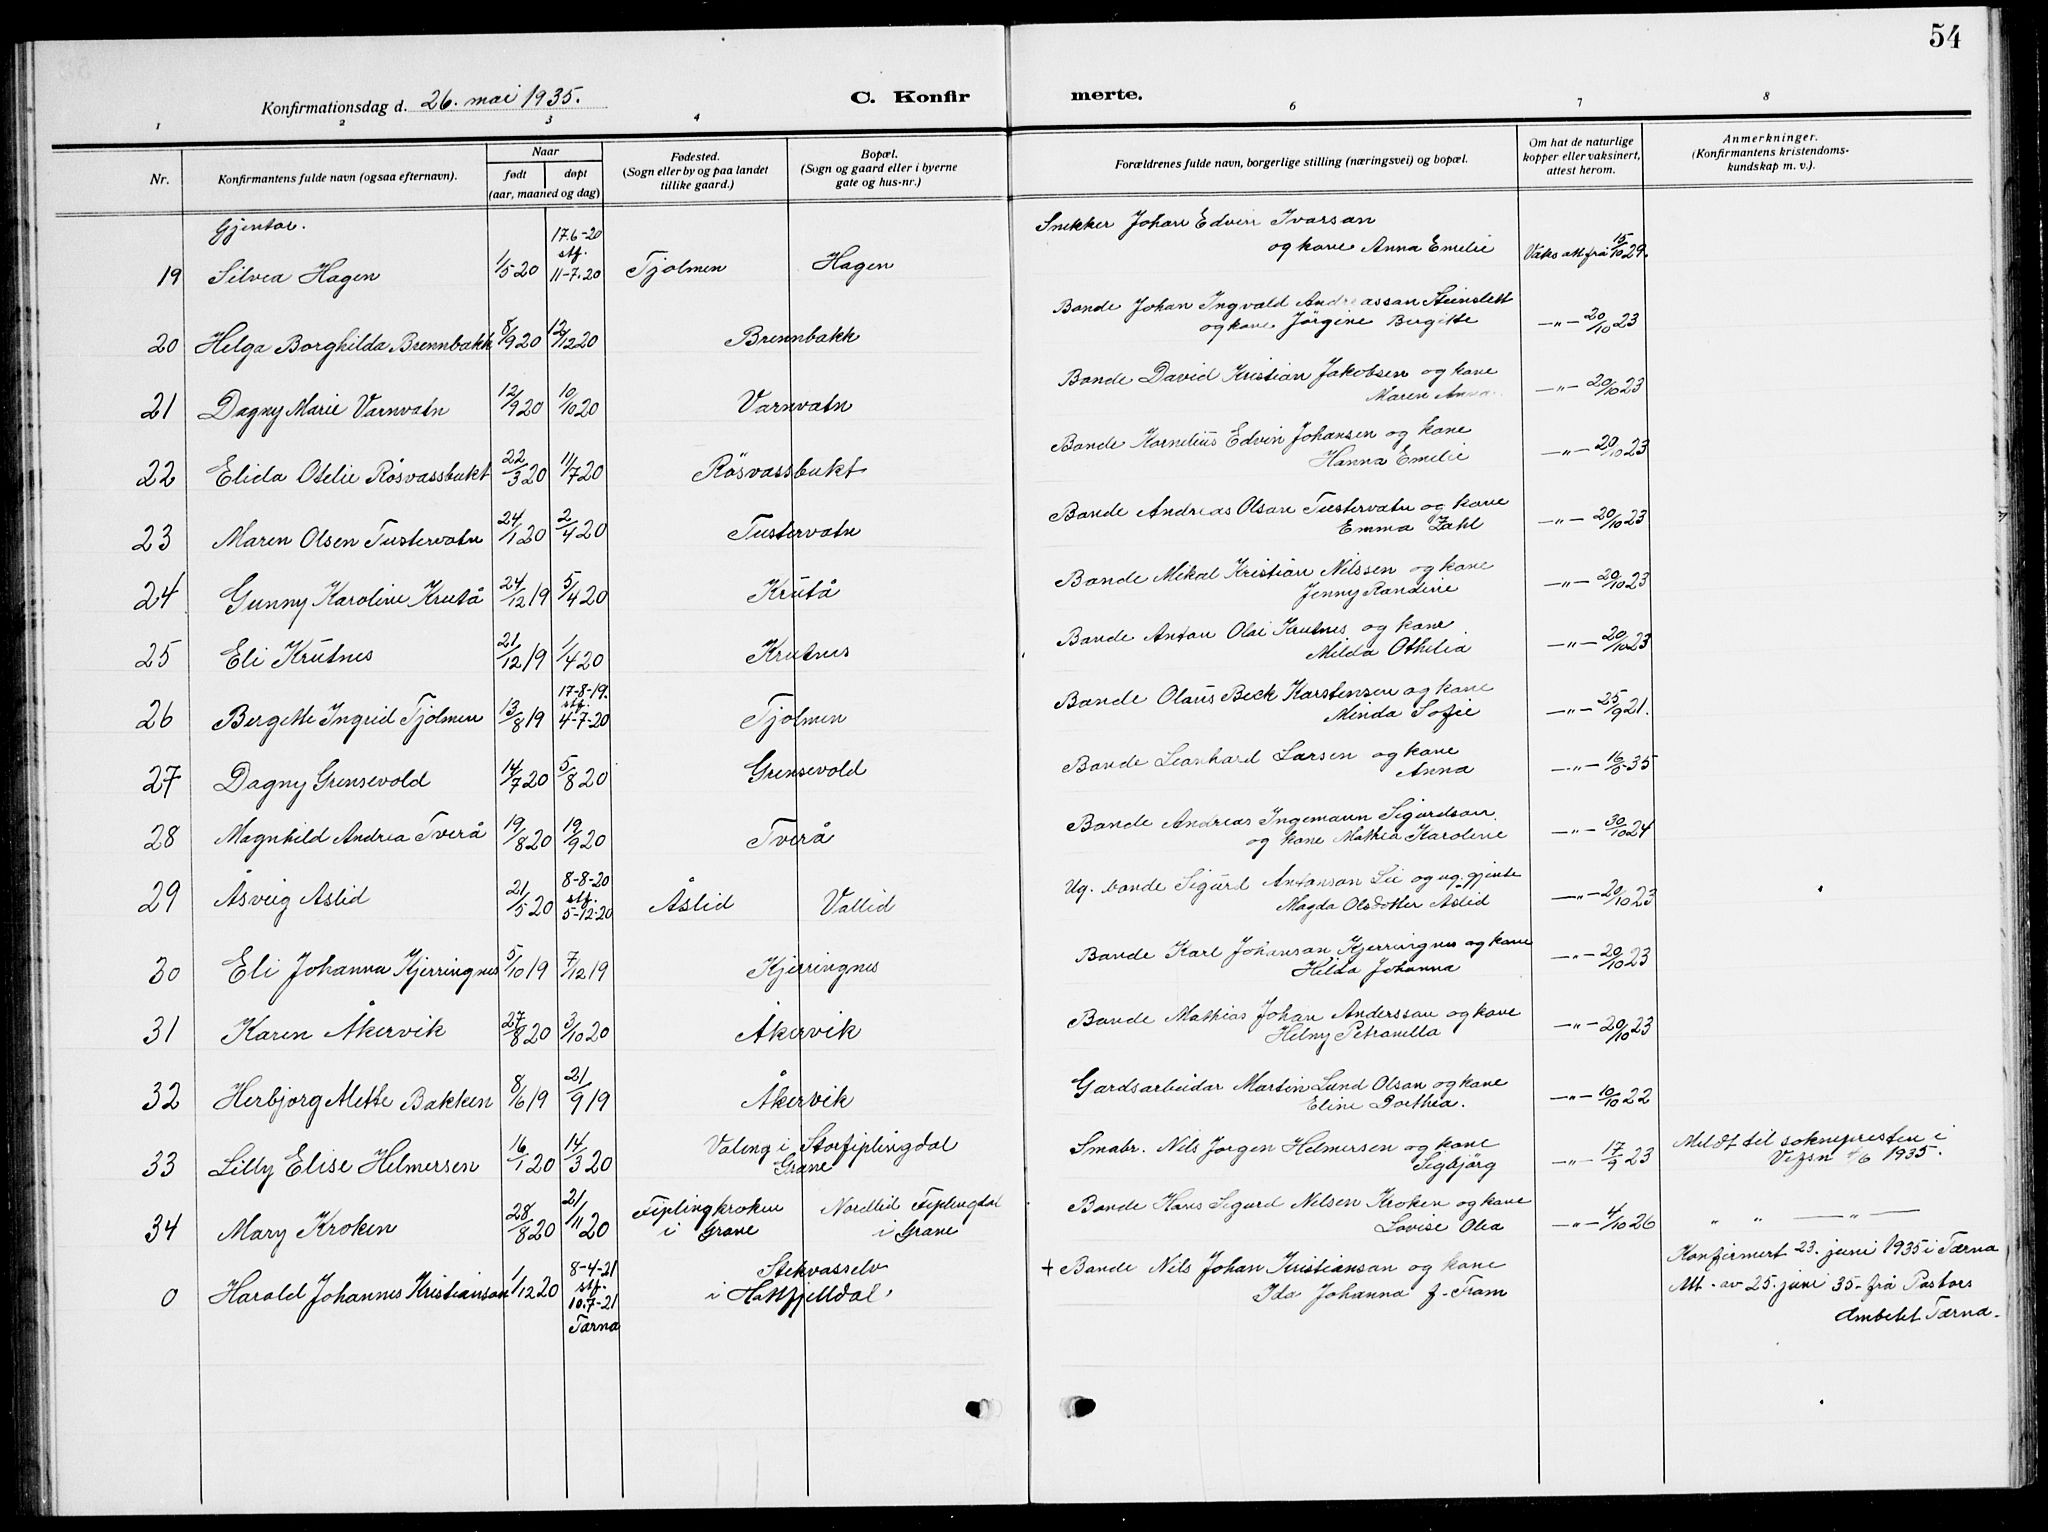 54
Konfirmationsdag d. 26. mai 1935.
C. Konfir
merte.
1 2 3 4 6 7 8
Nr.
Konfirmantens fulde navn (ogsaa efternavn).
Naar
født døpt
(aar, maaned og dag)
Fødested.
(Sogn eller by og paa landet
tillike gaard.)
Bopæl.
(Sogn og gaard eller i byerne
gate og hus-nr.)
Forældrenes fulde navn, borgerlige stilling (næringsvei) og bopæl.
Om hat de naturlige
kopper eller vaksinert,
attest herom.
Anmerkninger.
(Konfirmantens kristendoms-
kundskap m. v.).
Gjentor.
17.6-20
stf.
Snekker Johan Edvin Ivarson
og kone Anna Emelie
19 Silvea Hagen 1/5 20 11-7-20 Tjolmen Hagen Vaks att frå 15/10 29.
Bonde Johan Ingvald Andreasson Steinslett
20 Helga Borghilda Brennbakk 8/9 20 12/12 20 Brennbakk og kone Jörgine Bergitte —"— 20/10 23
Bonde David Kristian Jakobsen og kone
21 Dagny Marie Varnvatn 12/9 20 10/10 20 Varnvatn Maren Anna. —"— 20/10 23
Bonde Kornelius Edvin Johansen og kone
22 Elida Otelie Rösvassbukt 22/3 20 11/7 20 Rösvassbukt Hanna Emelie —"— 20/10 23
Bonde Andreas Olson Tustervatn og kone
23 Maren Olsen Tustervatn 24/1 20 2/4 20 Tustervatn Emma Zahl —"— 20/10 23
Bonde Mikal Kristian Nilssen og kone
24 Gunny Karoline Krutå 24/12 19 5/4 20 Krutå Jenny Randine —"— 20/10 23
Bonde Anton Olai Krutnes og kone
25 Eli Krutnes 21/12 19 1/4 20 Krutnes Milda Othelia —"— 20/10 23
17-8-19.
stf.
Bonde Olaus Beck Karstensen og kone
26 Bergette Ingrid Tjolmen 13/8 19 4-7-20 Tjolmen Minda Sofie —"— 25/9 21.
Bonde Leonhard Larsen og kone
27 Dagny Grensevold 14/7 20 5/8 20 Grensevold Anna —"— 16/5 35
Bonde Andreas Ingemann Sigurdson
28 Magnhild Andrea Tverå 19/8 20 19/9 20 Tverå og kone Mathea Karoline —"— 30/10 24
8-8-20
stf.
Ug. bonde Sigurd Antonson Lie og ug. gjente
29 Åsveig Aslid 21/5 20 5-12-20 Åslid Vallid Magda Olsdotter Aslid —"— 20/10 23
Bonde Karl Johanson Kjerringnes og kone
30 Eli Johanna Kjerringnes 5/10 19 7/12 19 Kjerringnes Hilda Johanna —"— 20/10 23
Bonde Mathias Johan Andersson og kone
31 Karen Åkervik 27/8 20 3/10 20 Åkervik Helny Petranella —"— 20/10 23
Gardsarbeidar Martin Lund Olson og kone
32 Herbjørg Mette Bakken 8/6 19 21/9 19 Åkervik Eline Dorthea. —"— 10/10 22
Valeng i Storfiplingdal
Grane
Smabr. Nils Jorgen Helmersen og kone
33 Lilly Elise Helmersen 16/1 20 14/3 20 Sigbjörg —"— 17/9 23
Meldt til soknepresten i
Vefsn 4/6 1935.
Fiplingkroken
i Grane
Nordlid Fiplingdal
i Grane
Bonde Hans Sigurd Nilsen Kroken og kone
34 Mary Kroken 28/8 20 21/11 20 Lovise Olea —"— 4/10 26 " " —"—
8-4-21
stf.
10.7-21
Tærna
Stekvasselv
i Hattfjelldal
+ Bonde Nils Johan Kristianson og kone
0 Harald Johannes Kristianson 1/12 20 Ida Johanna f. Tram
Konfirmert 23. juni 1935 i Tærna
Att. av 25. juni 35. frå Pastors
Ambetet Tærna.